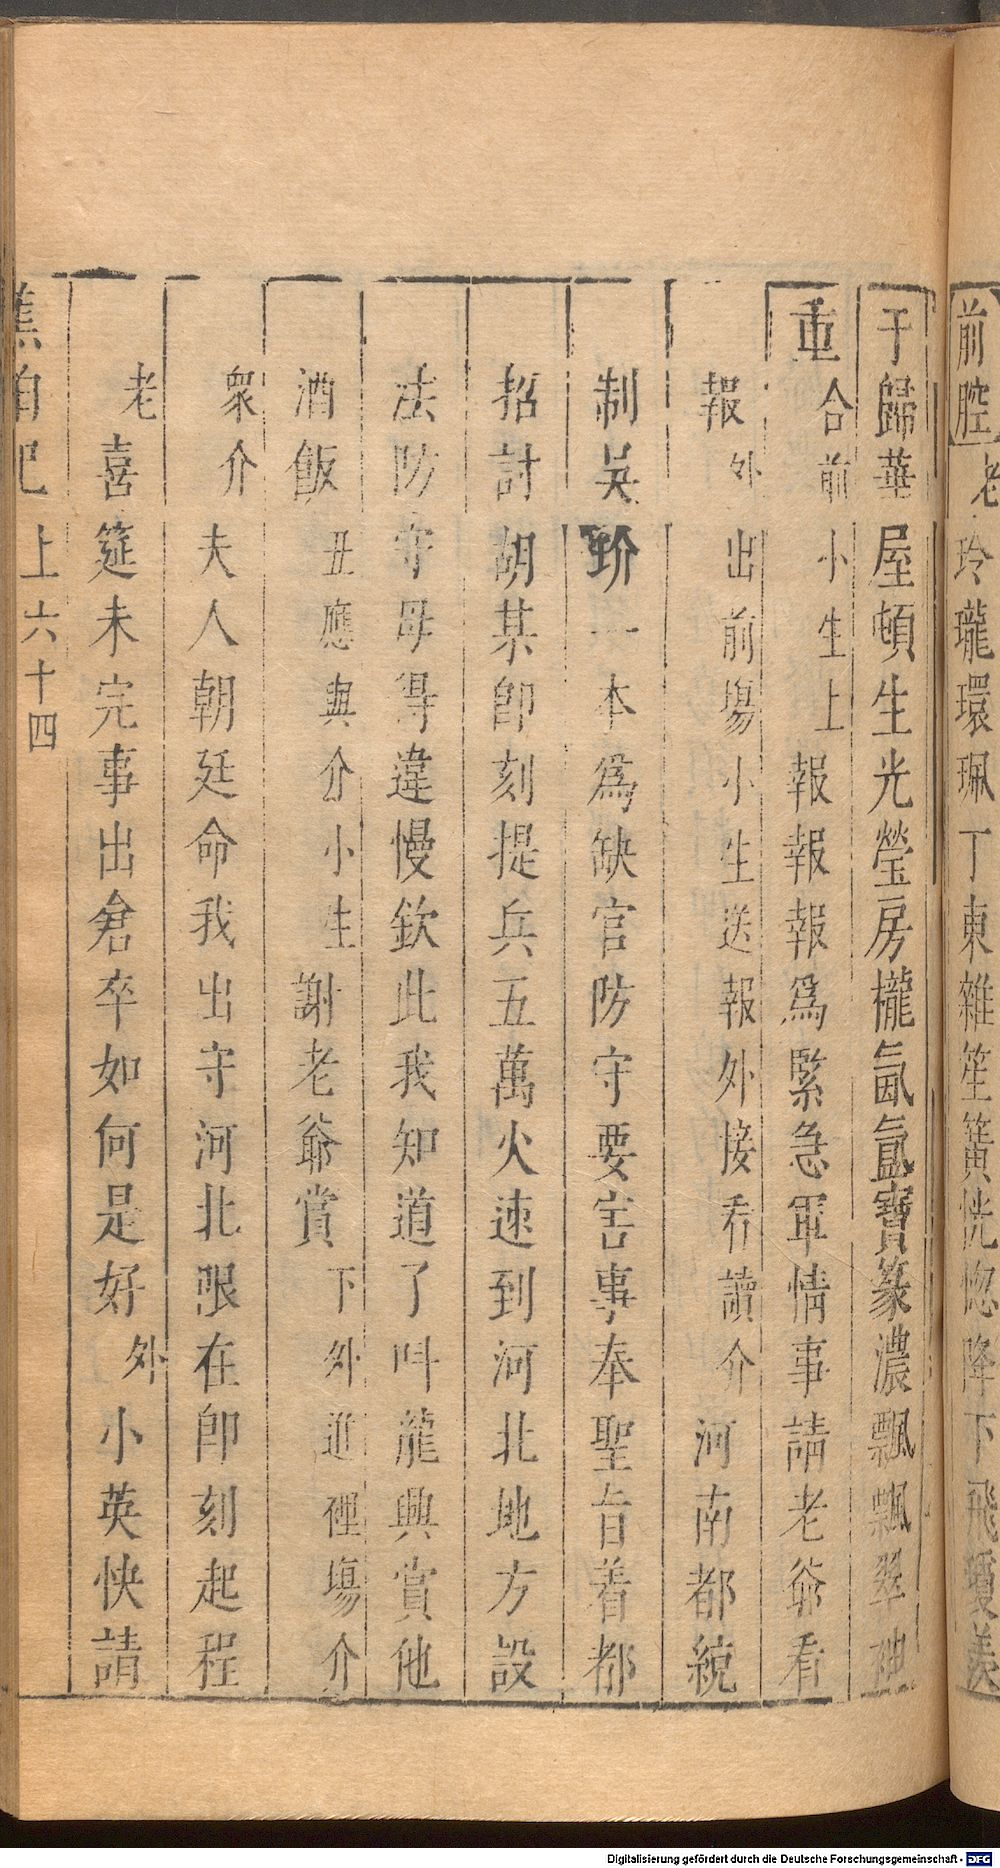 前腔 老 玲瓏環珮丁東雜笙簧恍惚降下飛瓊羨
于歸華屋頓生光瑩房櫳氤氳寶篆濃飄飄翠
重 合前 小生上 報報報爲緊急軍情事請老爺看
報 外出前場小生送報外接看讀介 河南都統
制吳玠一本爲缺官防守要害事奉聖旨着都
招討胡某卽刻提兵五萬火速到河北地方設
法防守毋得違慢欽此我知道了叫龍興賞他
酒飯 丑應與介小生 謝老爺賞 下外進裡場介
衆介 夫人朝廷命我出守河北限在卽刻起程
老 喜筵未完事出倉卒如何是好 外 小英快請
蕉帕記 上 六十四
Digitalisierung gefördert durch die Deutsche Forschungsgemeinschaft - DFG